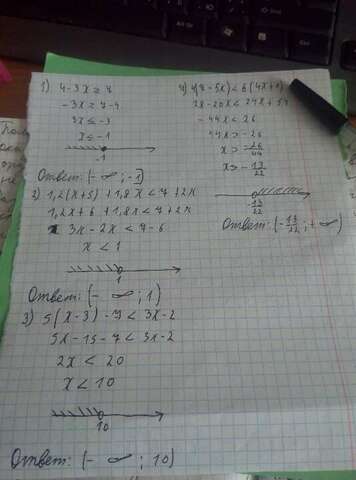 1) 4-3x ≥ 7
-3x ≥ 7-4
3x ≤ -3
x ≤ -1
-1
Ответ: (- ∞ ; -1]
2) 1,2(x+5) + 1,8x < 7 + 2x
1,2x+6 + 1,8x < 7+2x
3x - 2x < 7-6
x < 1
1
Ответ: (- ∞ ; 1)
3) 5(x-3) - 7 < 3x-2
5x-15-7 < 3x-2
2x < 20
x < 10
10
Ответ: (- ∞ ; 10)
28-20x < 24x+54
-44x < 26
44x > -26
x > -26/44
x > -13/22
-13/22
Ответ: (-13/22 ; +∞)